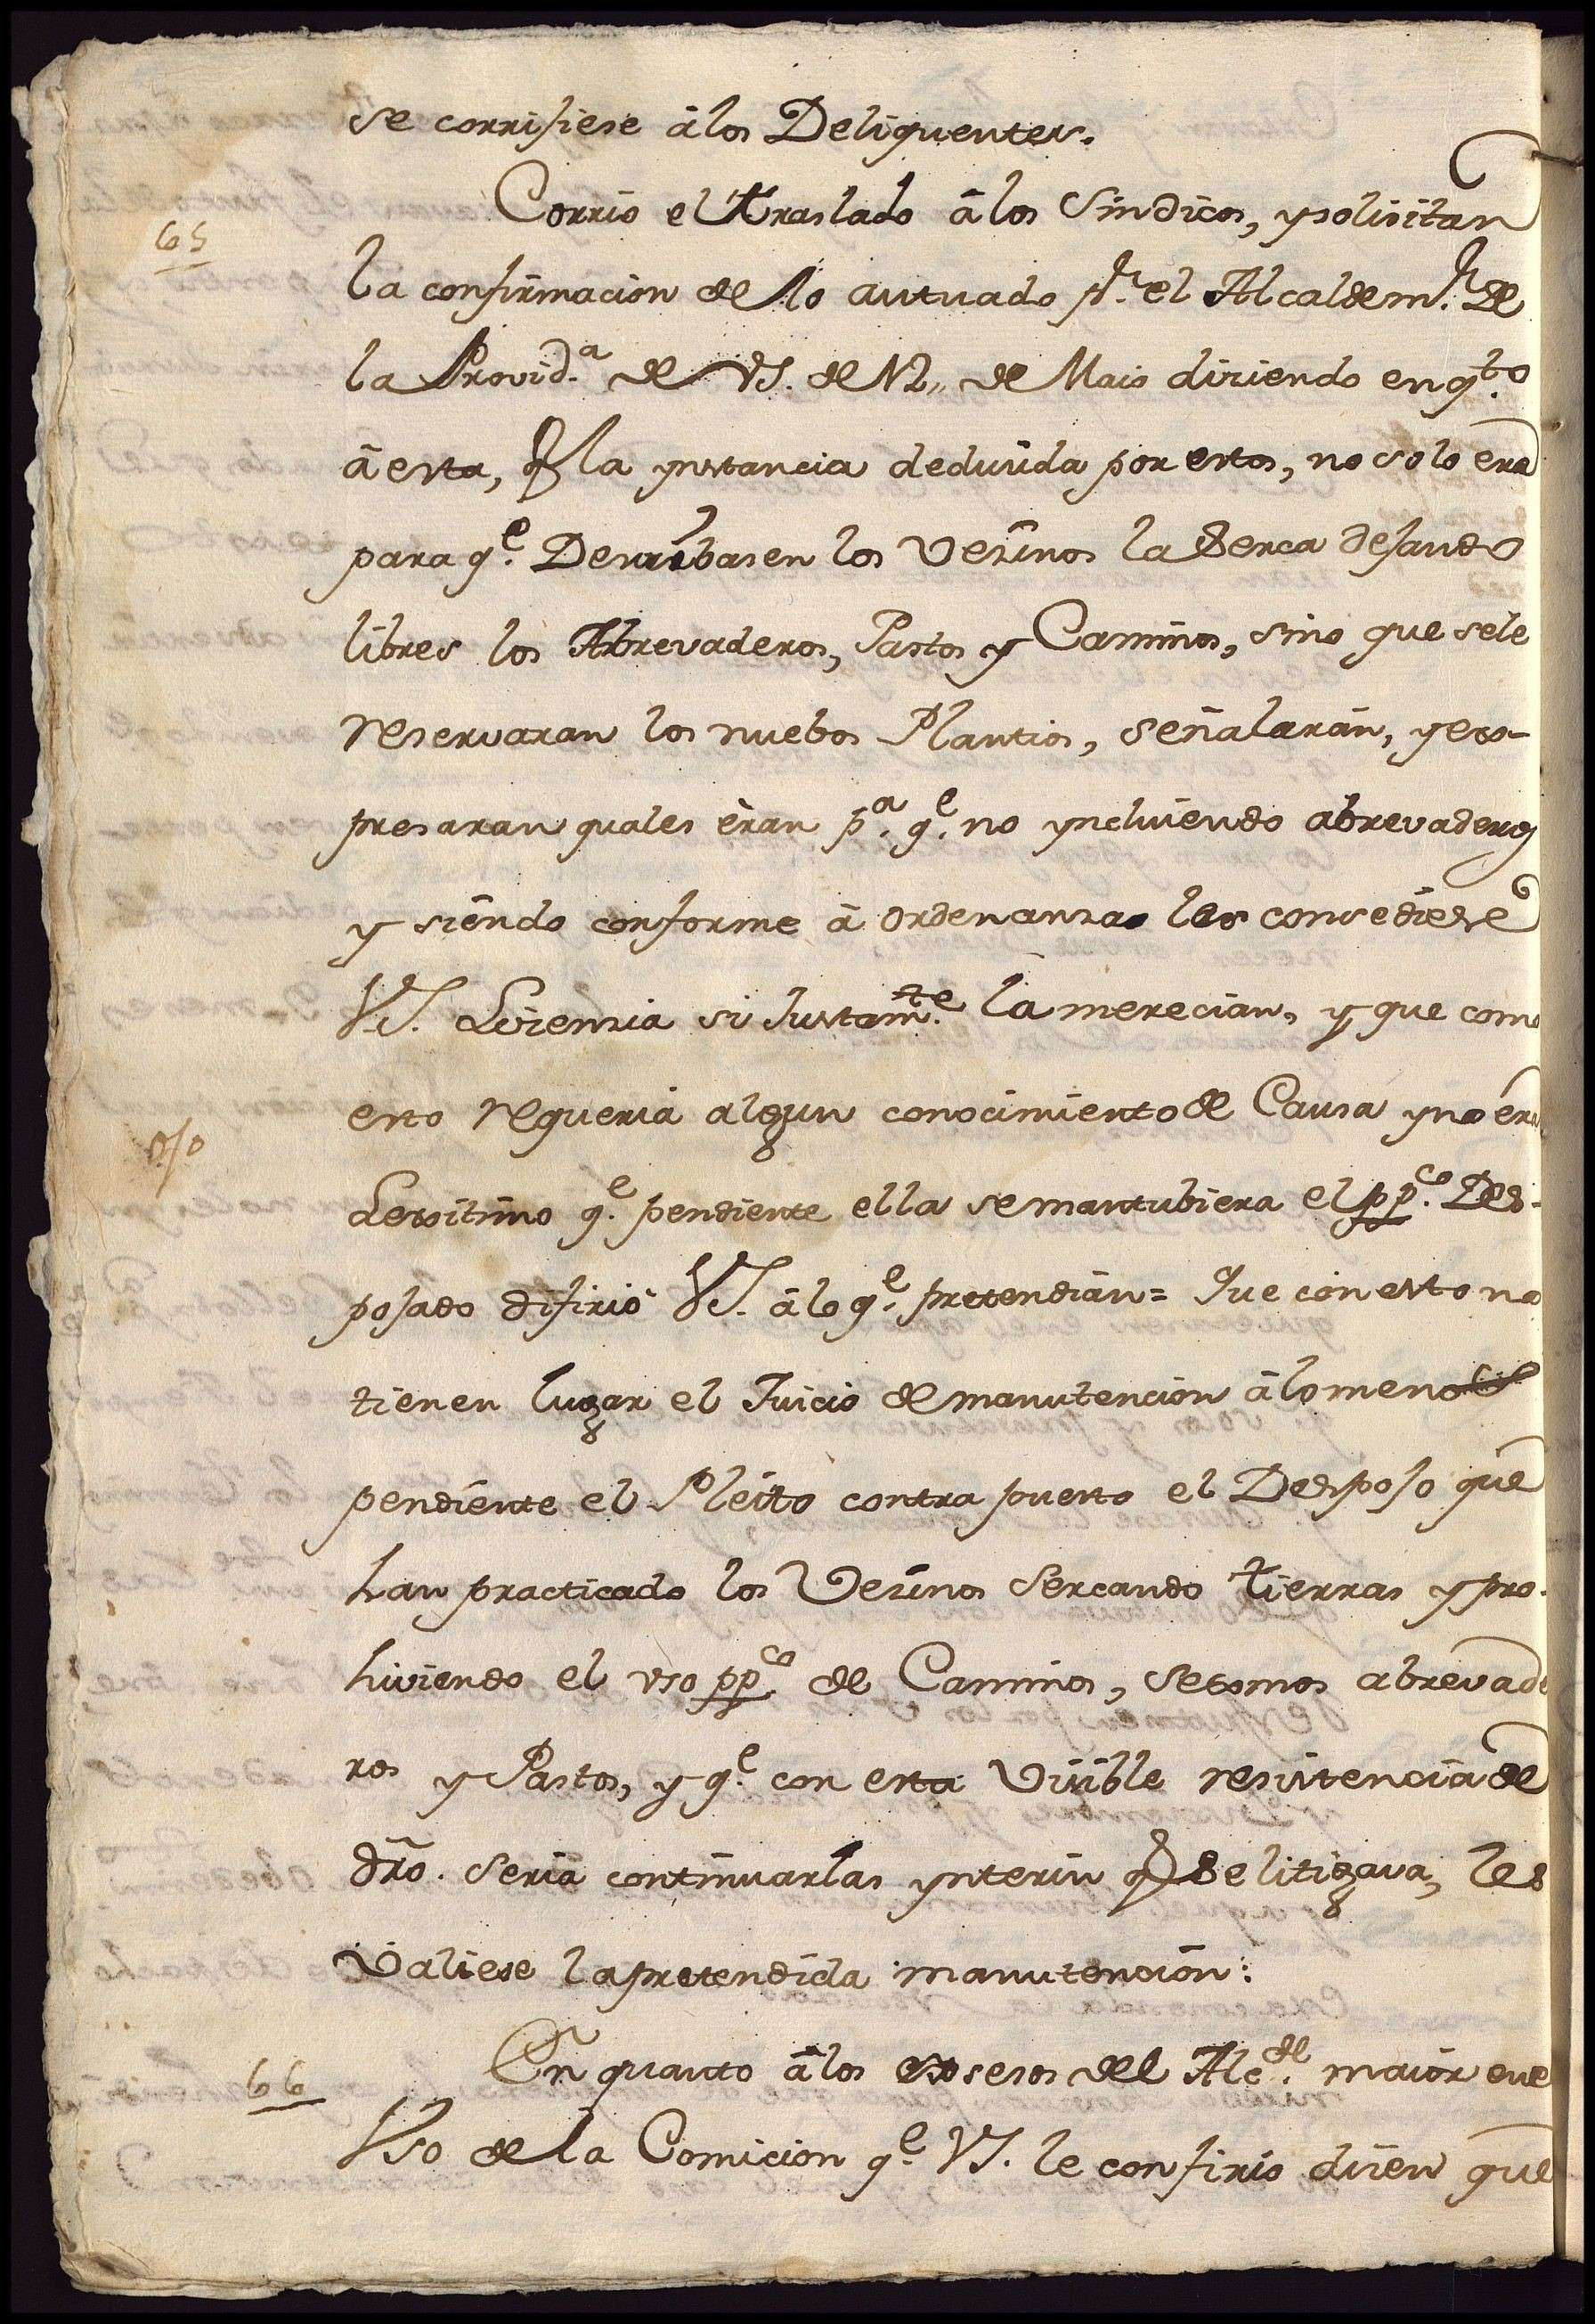 se corrijiese â los Deliquentes.
65
Corrio el traslado â los Sindicos, y solicitan
la confirmacion de lo autuado pr. el Alcalde mr. De
la Provid.a de VS. de 12,, de Maio diciendo en q.to
â esta, q la ynstancia deducida por estos, no solo era
para q.e Derribasen los Vesinos la Serca dejando
libres los Abrevaderos, Pastos y Caminos, sino que se le
reservaran los nuebos Plantios, señalarân, y ex-
presaran quales èran p.a q.e no yncluiendo abrevaderos
y siêndo conforme â Ordenansas les consediese
VS. Licensia si Justam.te la merecian, y que como
esto requeria algun conocimiento de Causa y no era
ojo
Lexitimo q.e pendiente ella se mantubiera el pp.co Des-
pojado difirió VS. â lo q.e pretendiân = Que con esto no
tienen lugar el Juicio de manutencion â lo menos
pendiente el Pleito contra puesto el Despojo que
han practicado los Vesinos Sercando tierras y pro-
hiviendo el vso pp.co de Caminos, Sesomos abrevade
ros y Pastos, y q.e con esta Visible resistencia de
dro. seria continuarlas ynterin q se litigava, les
Valiese la pretendida manutencion:
66
En quanto â los exsesos del Alc.de maior en el
Vso de la Comicion q.e VS. le confirio dicen que